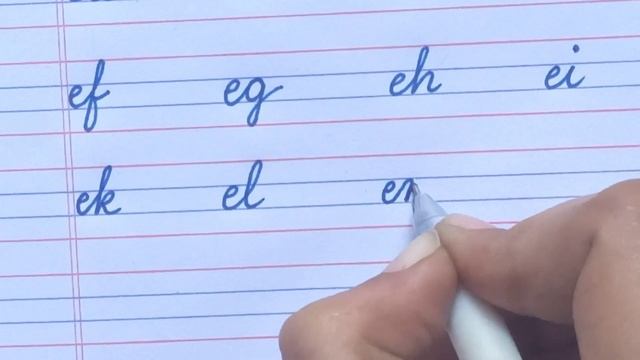 ef eg eh ei
ek el